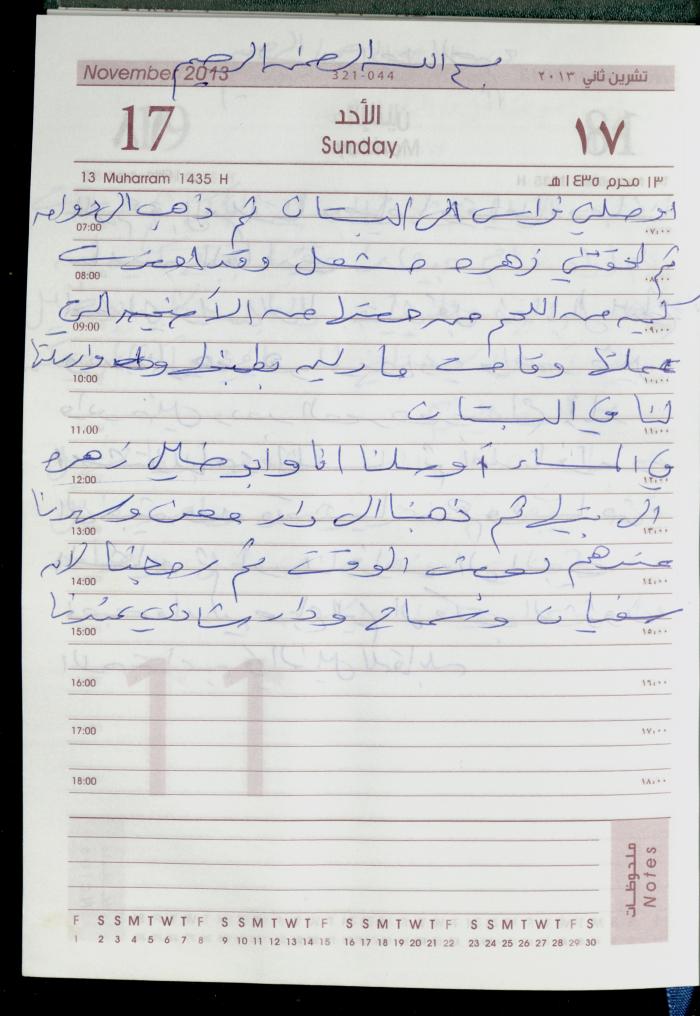 بسم الله الرحمن الرحيم
November 2013 321-044 تشرين ثاني ٢٠١٣
17 الأحد ١٧
Sunday
13 Muharram 1435 H ١٣ محرم ١٤٣٥ هـ
اوصلني فراس الى البستان ثم ذهب الى دوامه
07:00 ٠٧,٠٠
ثم لحقتني زهره مشعل وقد احضرت
08:00 ٠٨,٠٠
كميه من اللحم من حصتها من الأضحيه التي
09:00 ٠٩,٠٠
عملت وقامت ماريه بطبخه وارسلتها
10:00 ١٠,٠٠
لنا في البستان
11,00 ١١,٠٠
في المساء أوصلنا انا وابو خليل زهره
12:00 ١٢,٠٠
الى بتيلي ثم ذهبنا الى دار معن وسهرنا
13:00 ١٣,٠٠
عندهم بعض الوقت ثم رجعنا لان
14:00 ١٤,٠٠
سفيان وسماح ودار شادي عندنا
15:00 ١٥,٠٠
16:00 ١٦,٠٠
17:00 ١٧,٠٠
18:00 ١٨,٠٠
11
ملحوظات
Notes
F S S M T W T F S S M T W T F S S M T W T F S S M T W T F S
1 2 3 4 5 6 7 8 9 10 11 12 13 14 15 16 17 18 19 20 21 22 23 24 25 26 27 28 29 30